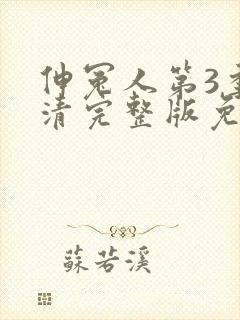 伸冤人第3季
清完整版免
蘇若溪